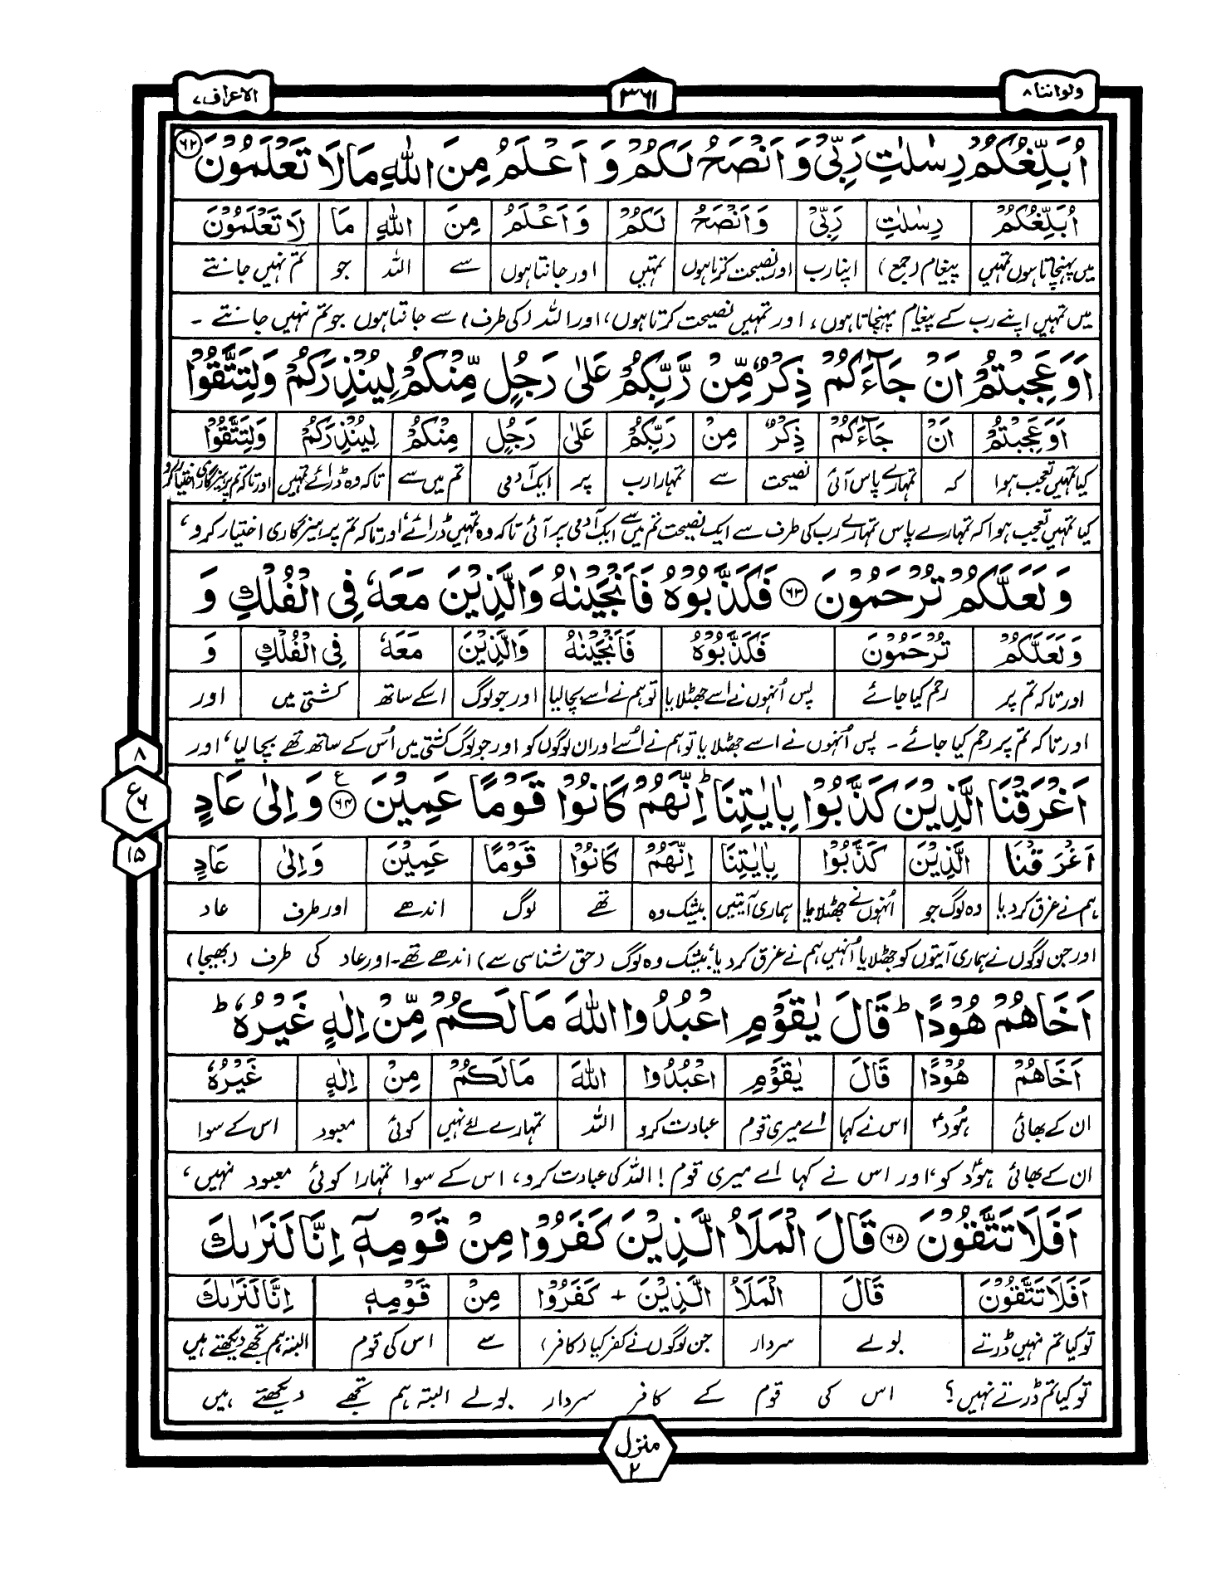 ولواننا ۸
۳۶۱
الاعراف ۷
اُبَلِّغُكُمْ رِسٰلٰتِ رَبِّیْ وَ اَنْصَحُ لَكُمْ وَ اَعْلَمُ مِنَ اللّٰهِ مَا لَا تَعْلَمُوْنَ ۶۲
اُبَلِّغُكُمْ رِسٰلٰتِ رَبِّیْ وَاَنْصَحُ لَكُمْ وَاَعْلَمُ مِنَ اللّٰهِ مَا لَا تَعْلَمُوْنَ
میں پہنچاتا ہوں تمہیں پیغام (جمع) اپنا رب اور نصیحت کرتا ہوں تمہیں اور جانتا ہوں سے اللہ جو تم نہیں جانتے
میں تمہیں اپنے رب کے پیغام پہنچاتا ہوں، اور تمہیں نصیحت کرتا ہوں، اور اللہ (کی طرف) سے جانتا ہوں جو تم نہیں جانتے ۔
اَوَ عَجِبْتُمْ اَنْ جَآءَكُمْ ذِكْرٌ مِّنْ رَّبِّكُمْ عَلٰی رَجُلٍ مِّنْكُمْ لِیُنْذِرَكُمْ وَلِتَتَّقُوْا
اَوَ عَجِبْتُمْ اَنْ جَآءَكُمْ ذِكْرٌ مِنْ رَبِّكُمْ عَلٰی رَجُلٍ مِنْكُمْ لِیُنْذِرَكُمْ وَلِتَتَّقُوْا
کیا تمہیں تعجب ہوا کہ تمہارے پاس آئی نصیحت سے تمہارا رب پر ایک آدمی تم میں سے تاکہ وہ ڈرائے تمہیں اور تاکہ تم پرہیزگاری اختیار کرو
کیا تمہیں تعجب ہوا کہ تمہارے پاس تمہارے رب کی طرف سے ایک نصیحت تم میں سے ایک آدمی پر آئی تاکہ وہ تمہیں ڈرائے، اور تاکہ تم پرہیزگاری اختیار کرو،
وَ لَعَلَّكُمْ تُرْحَمُوْنَ ۶۳ فَكَذَّبُوْهُ فَاَنْجَیْنٰهُ وَالَّذِیْنَ مَعَهٗ فِی الْفُلْكِ وَ
وَ لَعَلَّكُمْ تُرْحَمُوْنَ فَكَذَّبُوْهُ فَاَنْجَیْنٰهُ وَالَّذِیْنَ مَعَهٗ فِی الْفُلْكِ وَ
اور تاکہ تم پر رحم کیا جائے پس اُنہوں نے اسے جھٹلایا تو ہم نے اسے بچا لیا اور جو لوگ اسکے ساتھ کشتی میں اور
اور تاکہ تم پر رحم کیا جائے ۔ پس اُنہوں نے اسے جھٹلایا تو ہم نے اُسے اور ان لوگوں کو اور جو لوگ کشتی میں اُس کے ساتھ تھے بچا لیا، اور
اَغْرَقْنَا الَّذِیْنَ كَذَّبُوْا بِاٰیٰتِنَا ؕ اِنَّهُمْ كَانُوْا قَوْمًا عَمِیْنَ ۶۴ ع وَ اِلٰی عَادٍ
۸
ع ۶
۱۵
اَغْرَقْنَا الَّذِیْنَ كَذَّبُوْا بِاٰیٰتِنَا اِنَّهُمْ كَانُوْا قَوْمًا عَمِیْنَ وَ اِلٰی عَادٍ
ہم نے غرق کر دیا وہ لوگ جو اُنہوں نے جھٹلایا ہماری آیتیں بیشک وہ تھے لوگ اندھے اور طرف عاد
اور جن لوگوں نے ہماری آیتوں کو جھٹلایا اُنہیں ہم نے غرق کر دیا، بیشک وہ لوگ (حق شناسی سے) اندھے تھے۔ اور عاد کی طرف (بھیجا)
اَخَاهُمْ هُوْدًا ؕ قَالَ یٰقَوْمِ اعْبُدُوا اللّٰهَ مَا لَكُمْ مِّنْ اِلٰهٍ غَیْرُهٗ ؕ
اَخَاهُمْ هُوْدًا قَالَ یٰقَوْمِ اعْبُدُوا اللّٰهَ مَا لَكُمْ مِنْ اِلٰهٍ غَیْرُهٗ
ان کے بھائی ہُود اس نے کہا اے میری قوم عبادت کرو اللہ تمہارے لئے نہیں کوئی معبود اس کے سوا
ان کے بھائی ہود کو، اور اس نے کہا اے میری قوم! اللہ کی عبادت کرو، اس کے سوا تمہارا کوئی معبود نہیں،
اَفَلَا تَتَّقُوْنَ ۶۵ قَالَ الْمَلَاُ الَّذِیْنَ كَفَرُوْا مِنْ قَوْمِهٖۤ اِنَّا لَنَرٰىكَ
اَفَلَا تَتَّقُوْنَ قَالَ الْمَلَاُ الَّذِیْنَ + كَفَرُوْا مِنْ قَوْمِهٖ اِنَّا لَنَرٰىكَ
تو کیا تم نہیں ڈرتے بولے سردار جن لوگوں نے کفر کیا (کافر) سے اس کی قوم البتہ ہم تجھے دیکھتے ہیں
تو کیا تم ڈرتے نہیں؟ اس کی قوم کے کافر سردار بولے البتہ ہم تجھے دیکھتے ہیں
منزل ۲